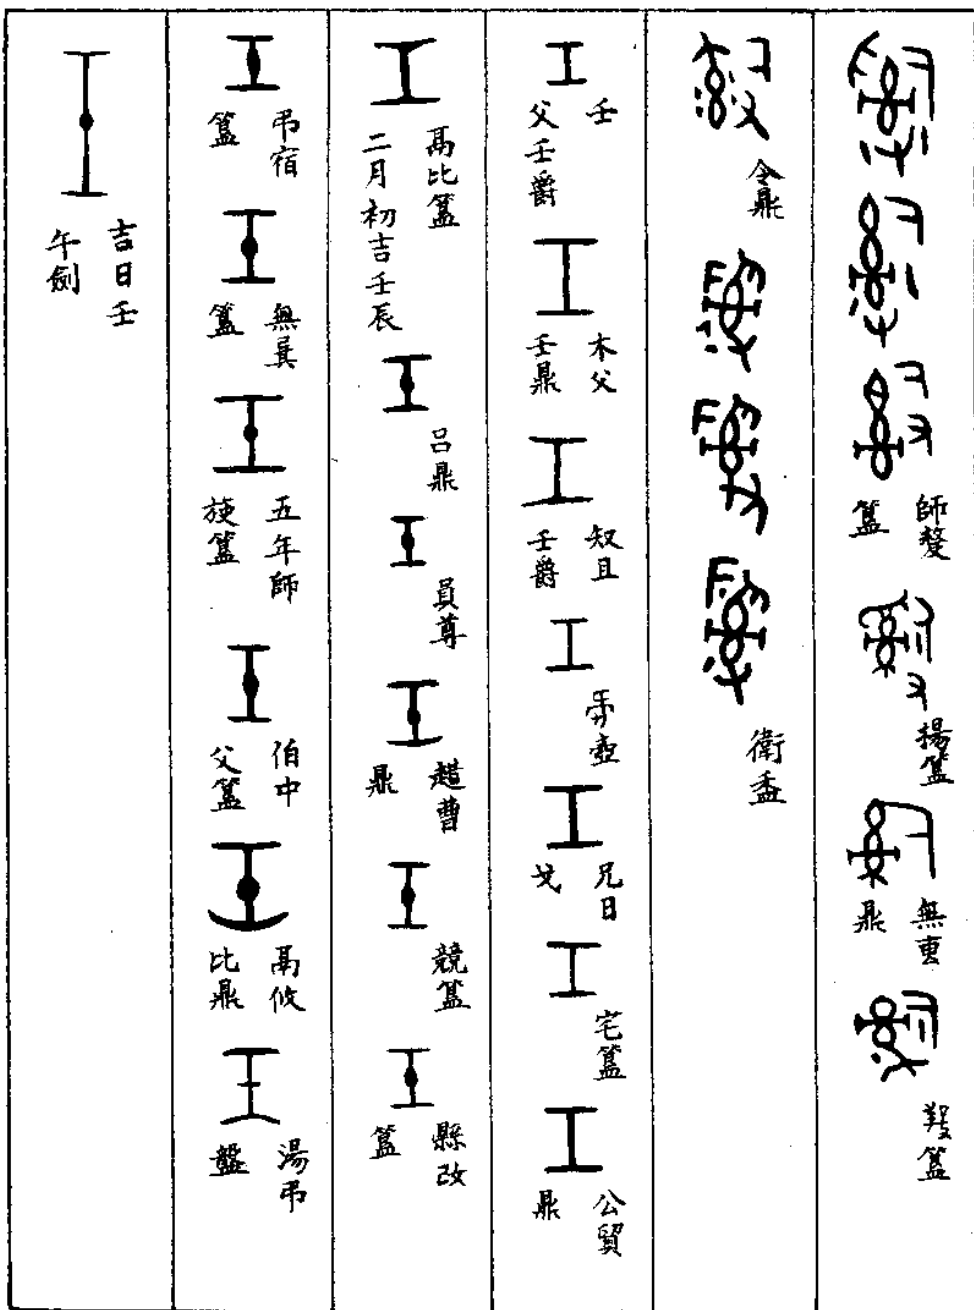 師
簋
揚簋
無叀
鼎
簋
令鼎
衛盉
壬
父壬爵
木父
壬鼎
且
壬爵
壺
兄日
戈
宅簋
公貿
鼎
鬲比簋
二月初吉壬辰
呂鼎
員尊
趞曹
鼎
競簋
縣改
簋
弔宿
簋
無㠱
簋
五年師
旋簋
伯中
父簋
鬲攸
比鼎
湯弔
盤
吉日壬
午劍